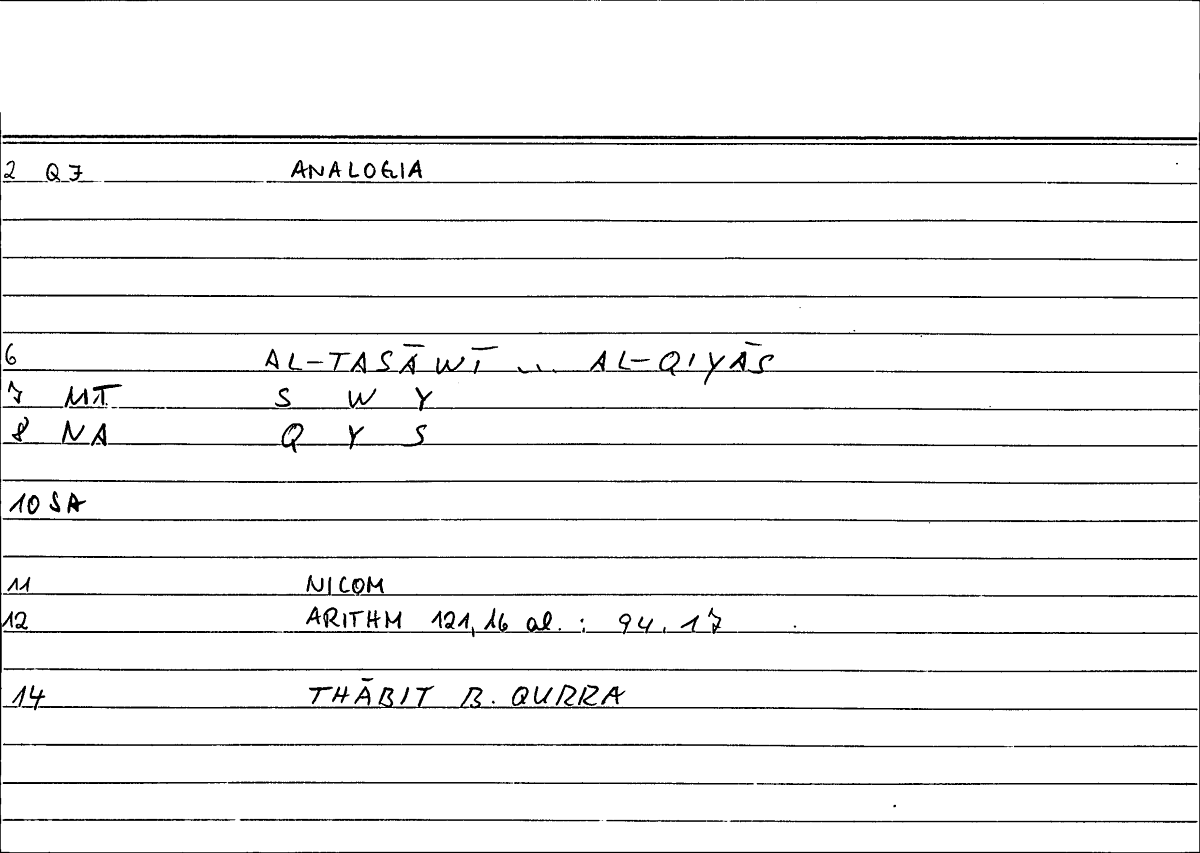 2 Q7 ANALOGIA
6 AL-TASĀWĪ ... AL-QIYĀS
7 MT S W Y
8 NA Q Y S
10 SA
11 NICOM
12 ARITHM 121,16 al. : 94.17
14 THĀBIT B. QURRA